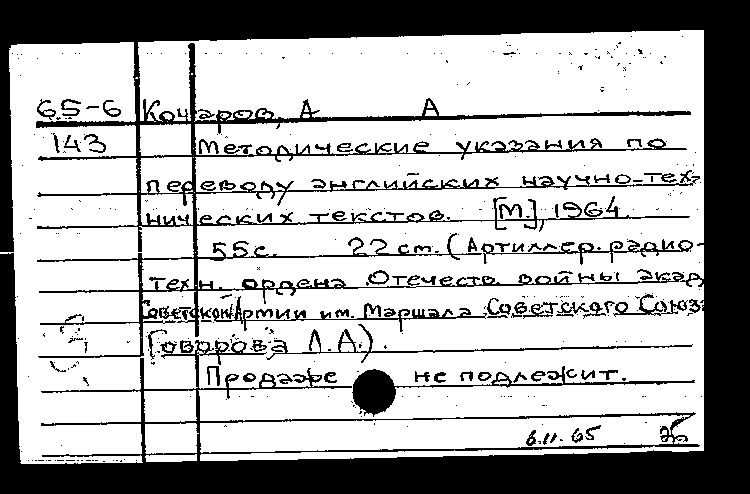 65-6 Кочаров, А А
143 Методические указания по
переводу английских научно-тех-
нических текстов. [М.], 1964.
55с. 22 см. (Артиллер. радио-
техн. ордена Отечеств. войны акад
Советской Армии им. Маршала Советского Союза
Говорова Л.А.).
Продаже не подлежит.
6.11.65